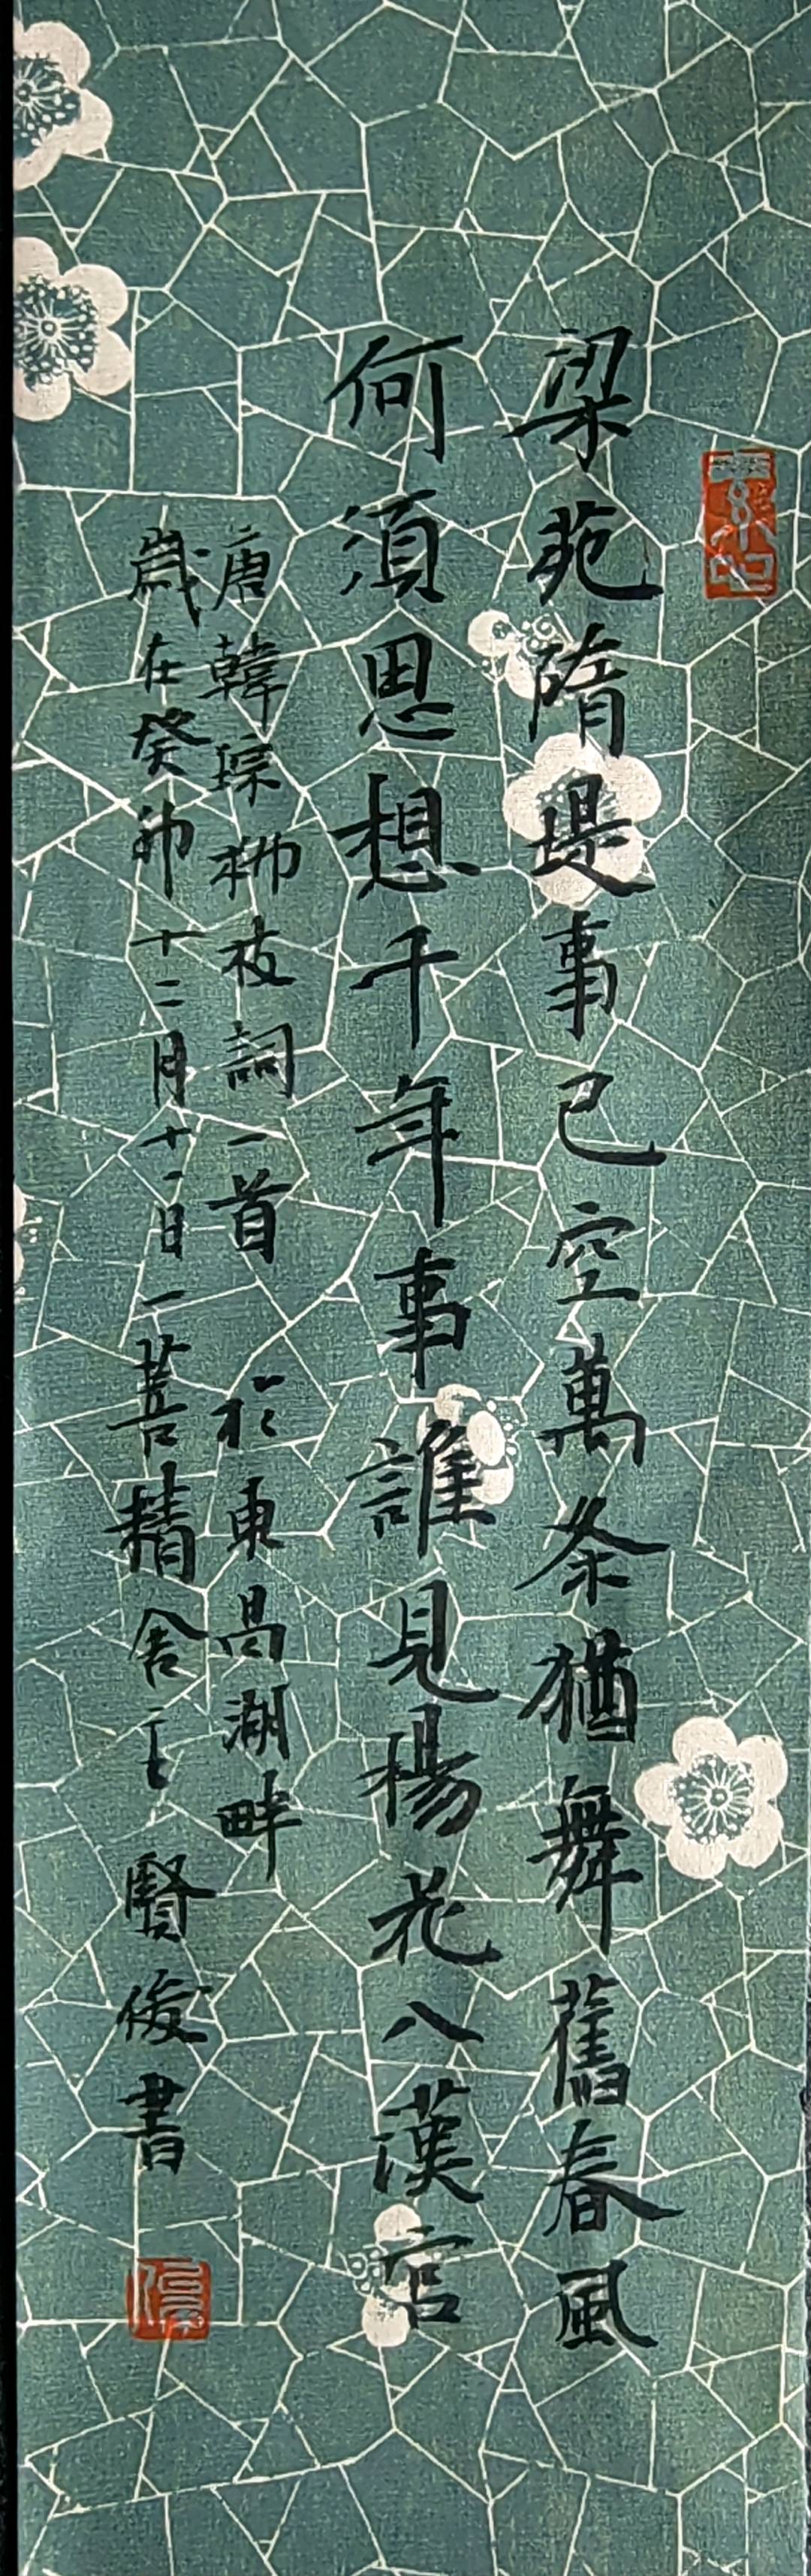 梁苑隋堤事已空萬条猶舞舊春風
何須思想千年事誰見楊花入漢宮
唐韓琮柳枝詞一首 於東昌湖畔
歲在癸卯十二月十一日一菩精舍主賢俊書